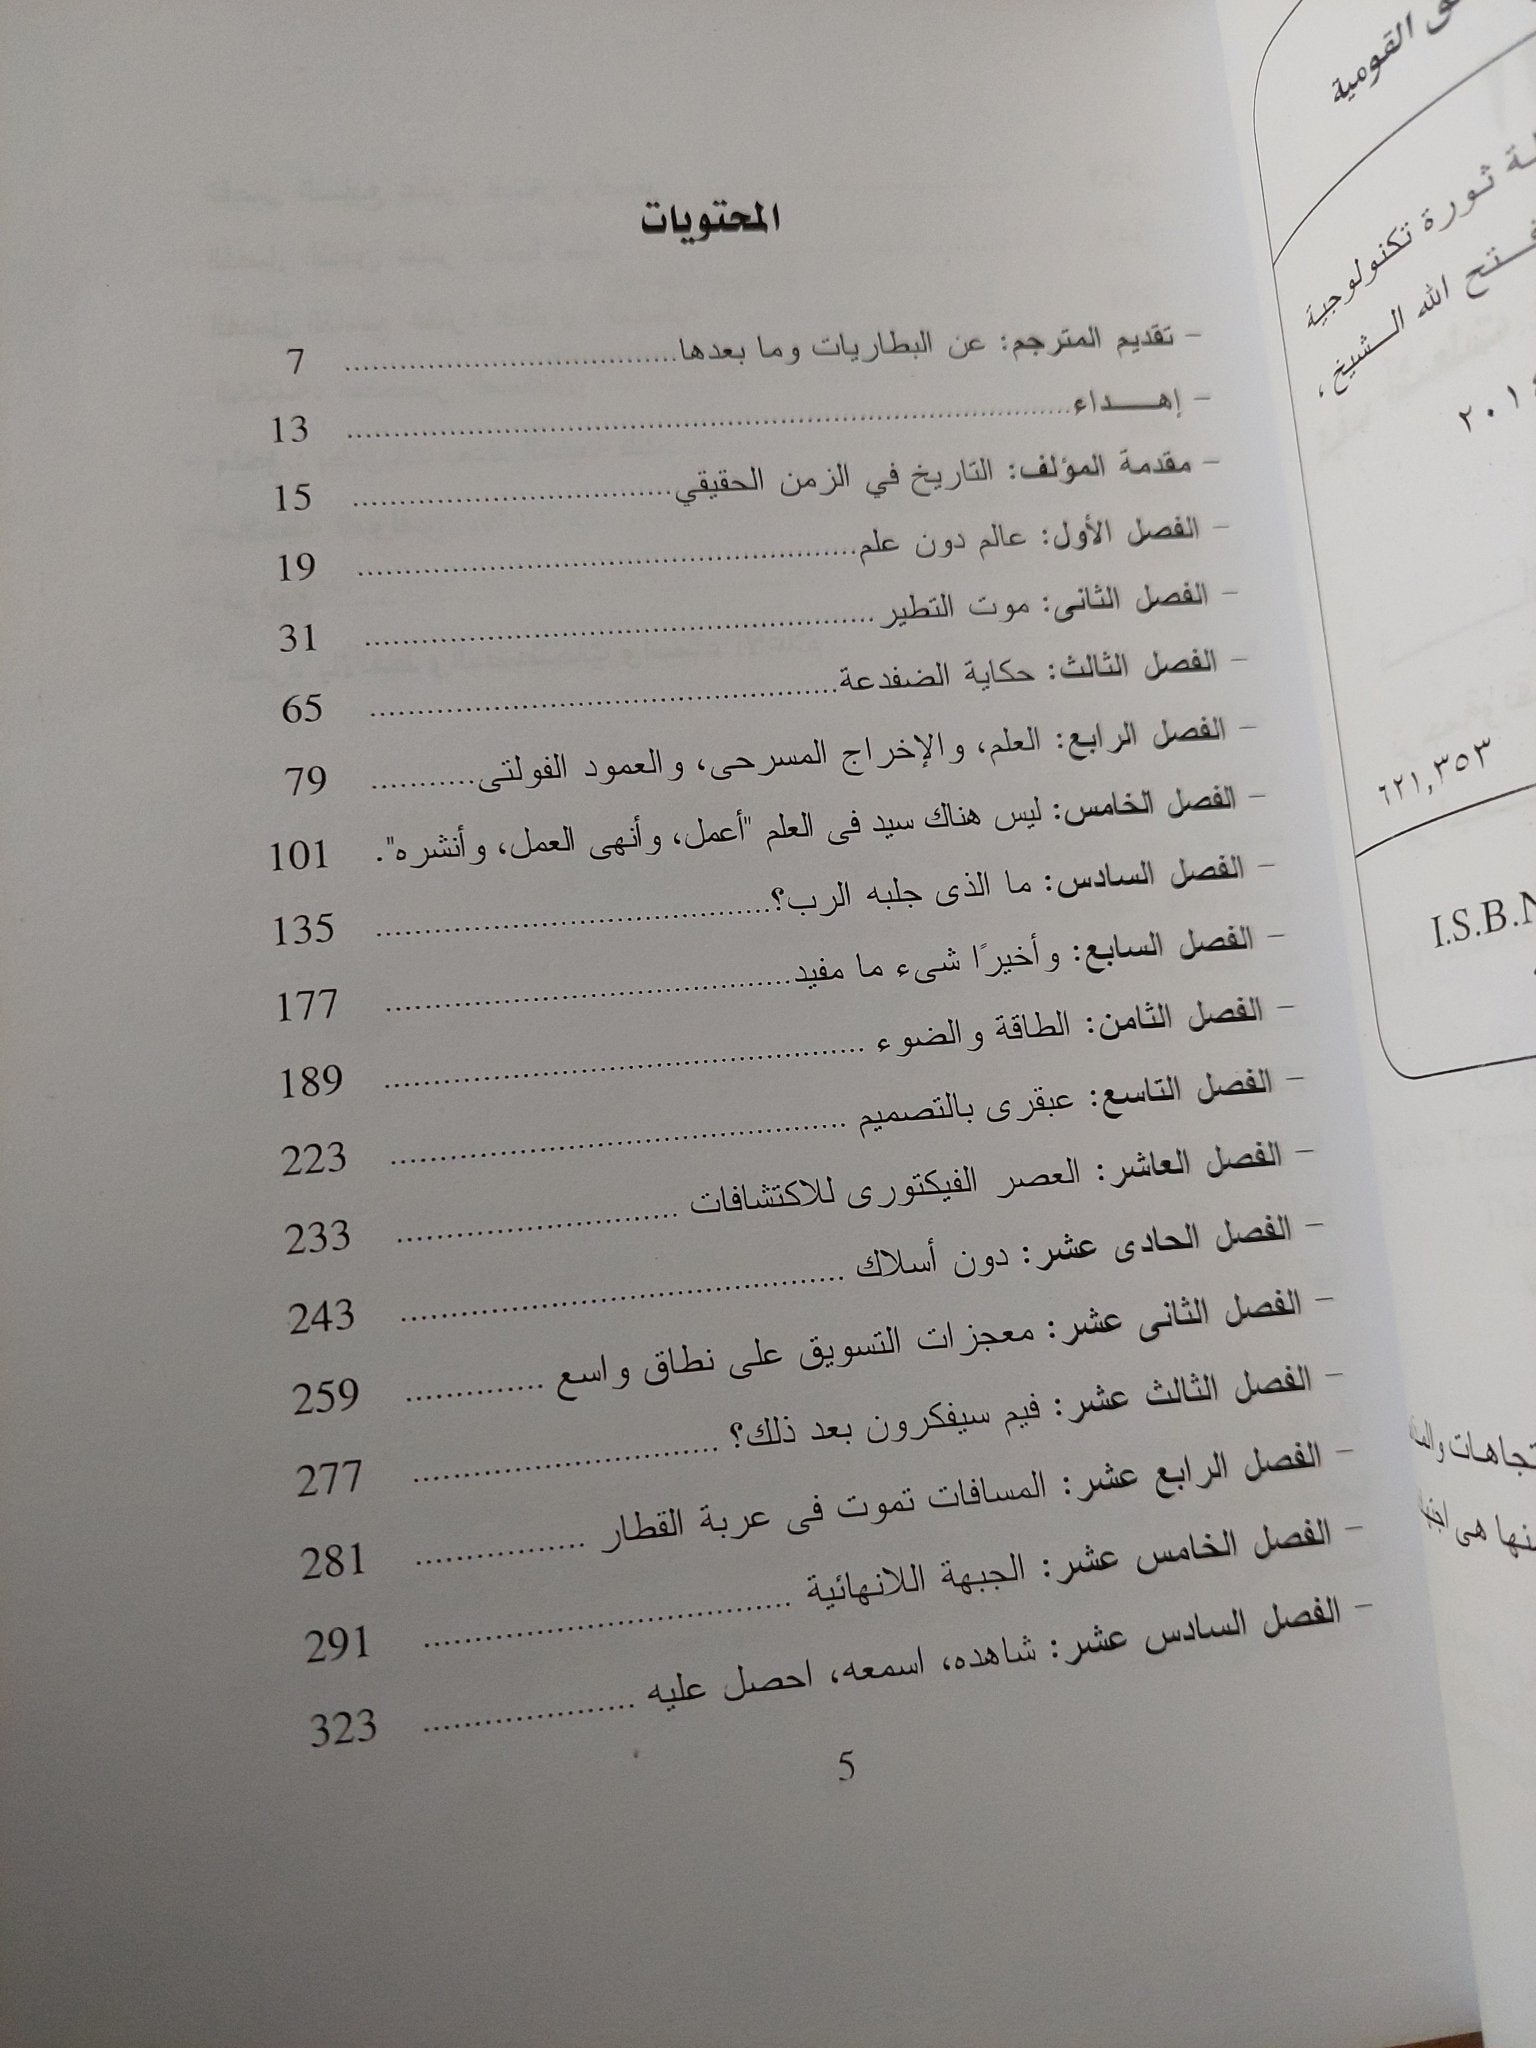 المحتويات
- تقديم المترجم: عن البطاريات وما بعدها 7
- إهـــداء 13
- مقدمة المؤلف: التاريخ في الزمن الحقيقي 15
- الفصل الأول: عالم دون علم 19
- الفصل الثانى: موت التطير 31
- الفصل الثالث: حكاية الضفدعة 65
- الفصل الرابع: العلم، والإخراج المسرحى، والعمود الفولتى 79
- الفصل الخامس: ليس هناك سيد فى العلم "أعمل، وأنهى العمل، وأنشره". 101
- الفصل السادس: ما الذى جلبه الرب؟ 135
- الفصل السابع: وأخيرًا شىء ما مفيد 177
- الفصل الثامن: الطاقة والضوء 189
- الفصل التاسع: عبقرى بالتصميم 223
- الفصل العاشر: العصر الفيكتورى للاكتشافات 233
- الفصل الحادى عشر: دون أسلاك 243
- الفصل الثانى عشر: معجزات التسويق على نطاق واسع 259
- الفصل الثالث عشر: فيم سيفكرون بعد ذلك؟ 277
- الفصل الرابع عشر: المسافات تموت فى عربة القطار 281
- الفصل الخامس عشر: الجبهة اللانهائية 291
- الفصل السادس عشر: شاهده، اسمعه، احصل عليه 323
5
القومية
ثورة تكنولوجية
الله الشيخ،
٦٢١,٣٥٣
I.S.B.N
هى